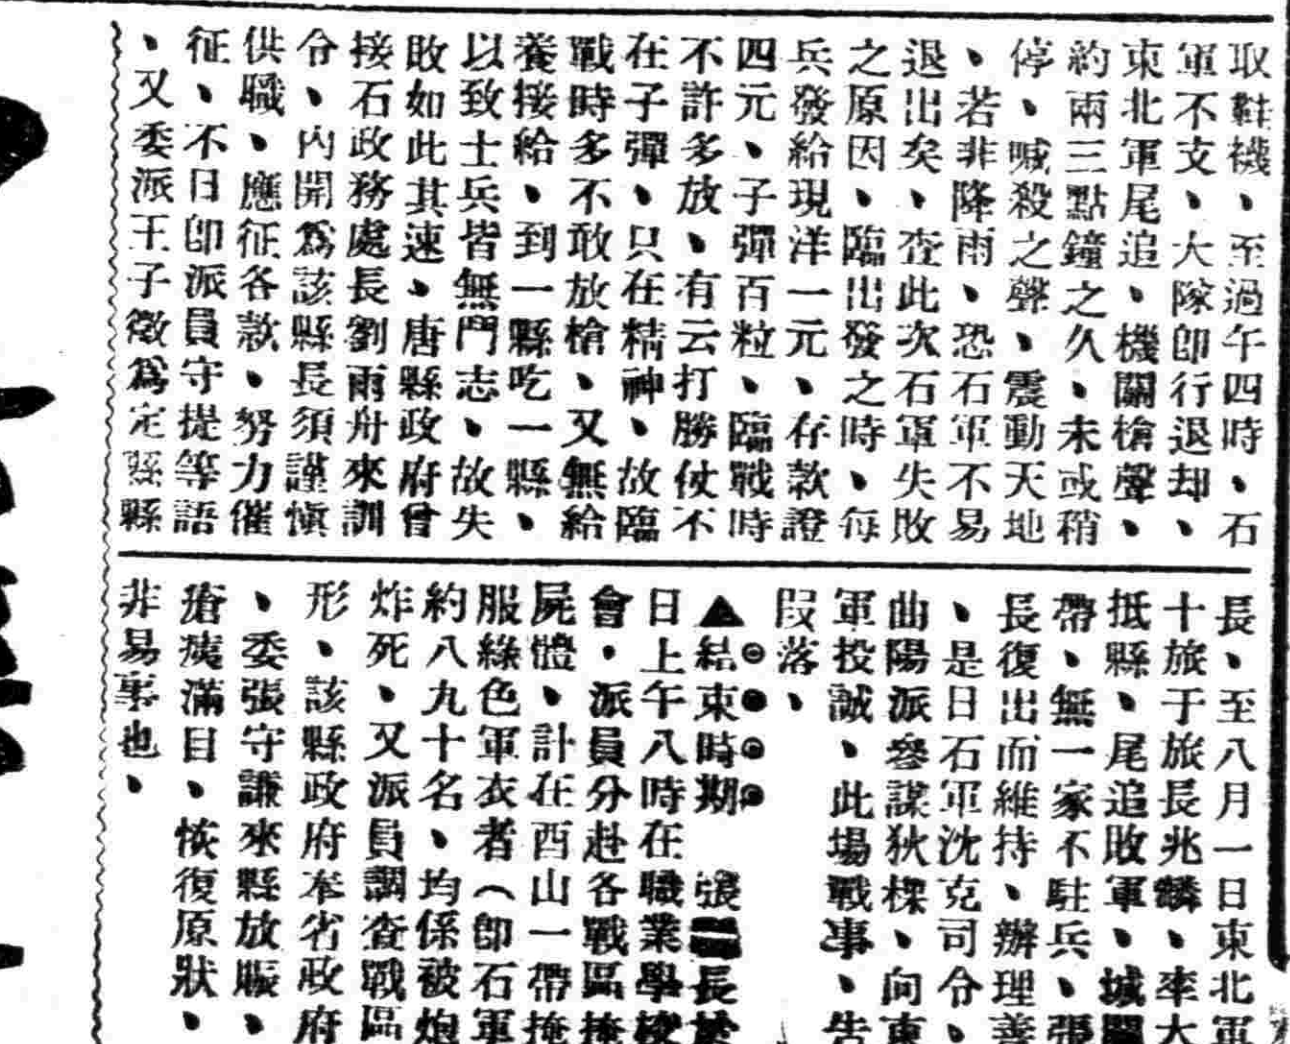 取鞋襪、至過午四時、石
軍不支、大隊卽行退却、
東北軍尾追、機關槍聲、
約兩三點鐘之久、未或稍
停、喊殺之聲、震動天地
、若非降雨、恐石軍不易
退出矣、查此次石軍失敗
之原因、臨出發之時、每
兵發給現洋一元、存款證
四元、子彈百粒、臨戰時
不許多放、有云打勝仗不
在子彈、只在精神、故臨
戰時多不敢放槍、又無給
養接給、到一縣吃一縣、
以致士兵皆無鬥志、故失
敗如此其速、唐縣政府曾
接石政務處長劉雨舟來訓
令、內開爲該縣長須謹愼
供職、應征各款、努力催
征、不日卽派員守提等語
、又委派王子徵爲定縣縣
長、至八月一日東北軍
十旅于旅長兆麟、率大
抵縣、尾追敗軍、城關
帶、無一家不駐兵、張
長復出而維持、辦理善
、是日石軍沈克司令、
曲陽派參謀狄樑、向東
軍投誠、此場戰事、告
段落、
▲結束時期　張縣長於
日上午八時在職業學校
會、派員分赴各戰區掩
屍體、計在西山一帶掩
服綠色軍衣者（卽石軍
約八九十名、均係被炮
炸死、又派員調查戰區
形、該縣政府奉省政府
、委張守謙來縣放賑、
瘡痍滿目、恢復原狀、
非易事也、